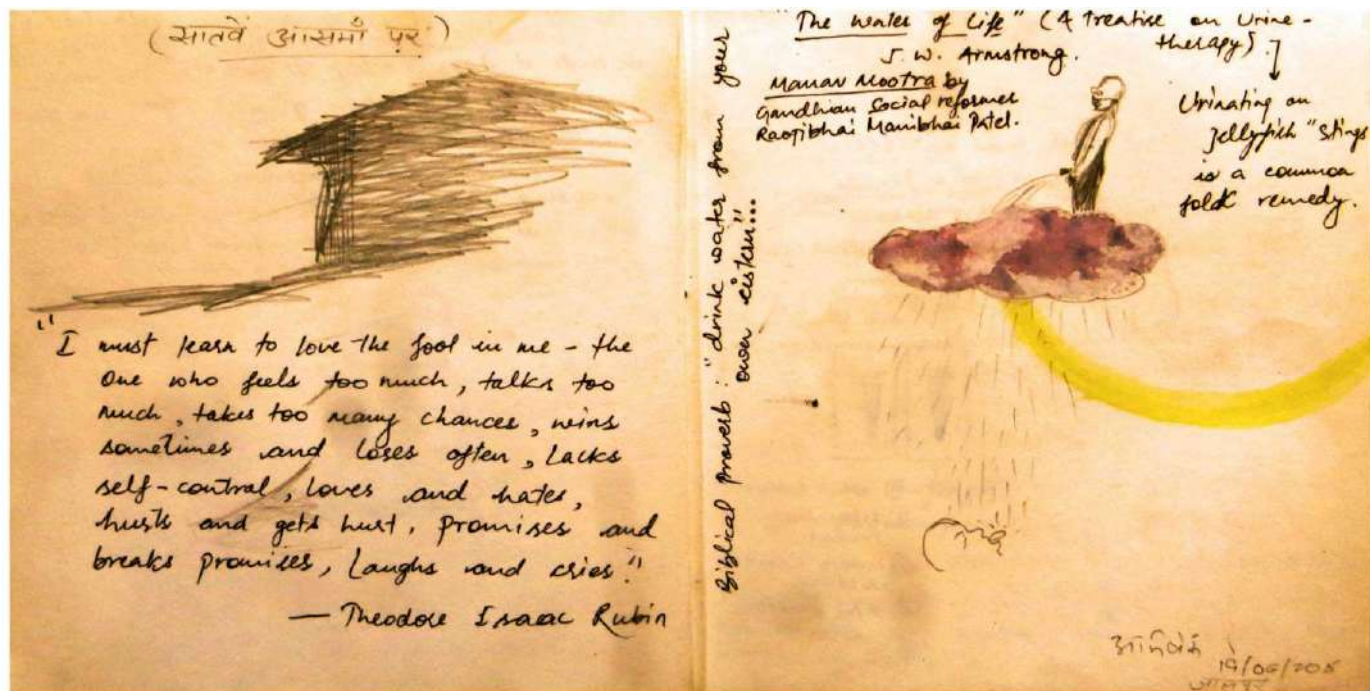 (सातवें आसमाँ पर)
"I must learn to love the fool in me - the
One who feels too much, talks too
much, takes too many chances, wins
sometimes and loses often, lacks
self-control, loves and hates,
hurts and gets hurt, promises and
breaks promises, laughs and cries."
— Theodore Isaac Rubin
Biblical proverb: "drink water from your
own cistern"...
"The Water of Life" (A treatise on Urine-
therapy)
J. W. Armstrong.
Manav Mootra by
Gandhian Social reformer
Raojibhai Manibhai Patel.
Urinating on
jellyfish "stings
is a common
folk remedy.